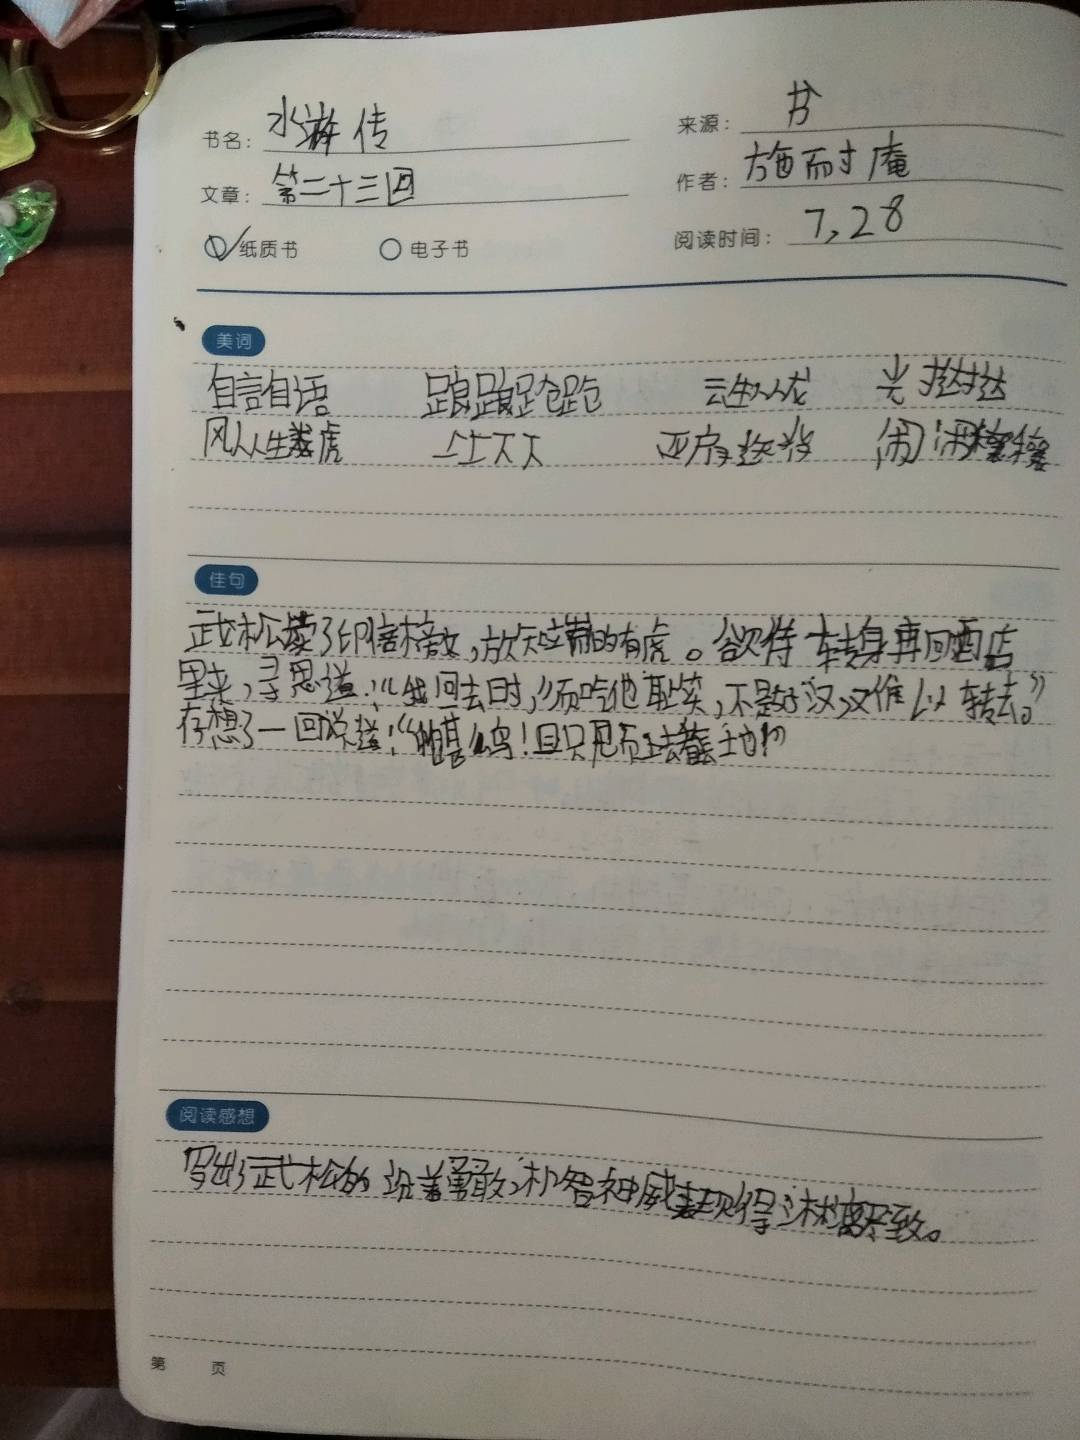 书名： 水浒传
来源： 书
文章： 第二十三回
作者： 施耐庵
纸质书 电子书
阅读时间： 7,28
美词
自言自语 踉踉跄跄 云生从龙 光挞挞
风从生虎 上上下下 闹闹穰穰
佳句
武松读了印信榜文,放知端的有虎。欲待转身再回酒店
里来,寻思道:“我回去时,须吃他耻笑,不是好汉,难以转去。”
存想了一回说道:“怕甚么鸟!且只见而上去看
阅读感想
写出了武松的沉着勇敢,机智神威表现得淋漓尽致。
第 页